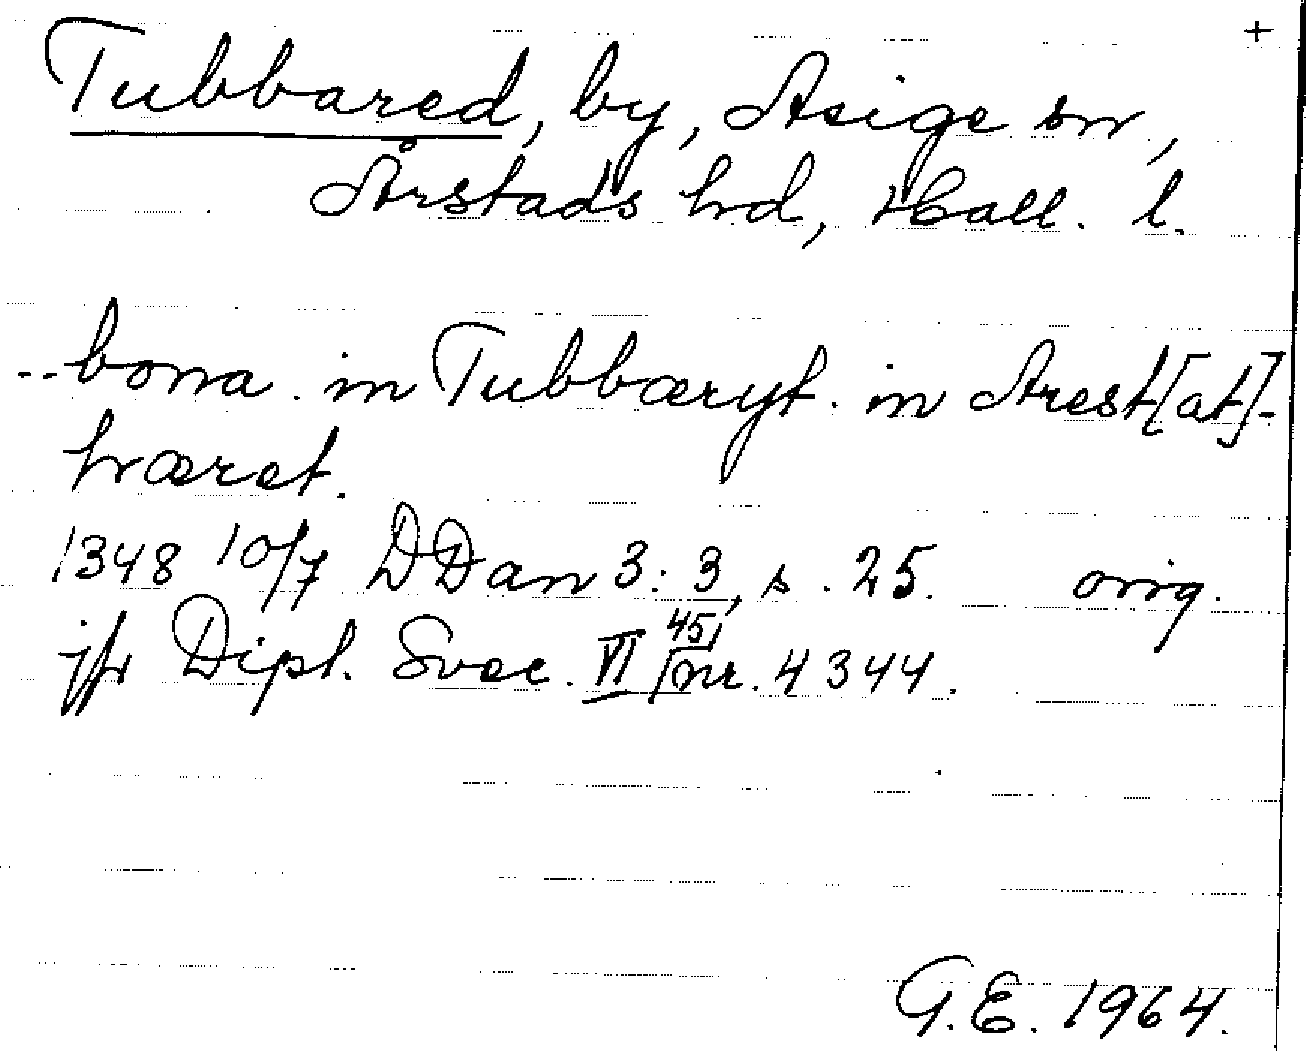 +
Tubbared, by, Asige sn,
Årstads hrd, Hall. l.
--bona in Tubbæryt in Arest[at]-
hræret.
1348 10/7 DDan 3:3, s. 25. orig.
jfr Dipl. Svec. VI [45, nr. 4344.
G.E. 1964.